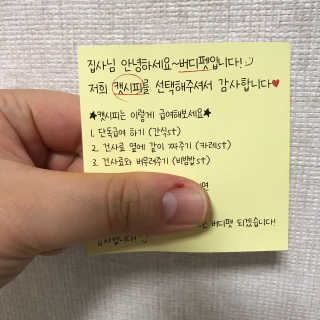 집사님 안녕하세요~버디펫입니다!
저희 캣시피를 선택해주셔서 감사합니다♥
★캣시피는 이렇게 급여해보세요★
1. 단독급여 하기 (간식st)
2. 건사료 옆에 같이 짜주기 (카레st)
3. 건사료와 버무려주기 (비빔밥st)
버디펫 되겠습니다!